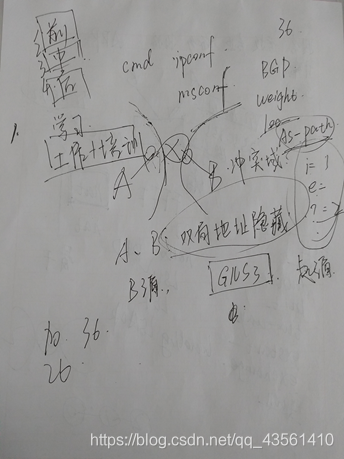 前
中
后
36
cmd ipconf
msconf
BGP
weight
AS-path
1.
学习
工作+培训
A
B
冲突域
i= 1
e=
?= 2
A、B 双向地址隐藏
GNS3
加 36
26
https://blog.csdn.net/qq_43561410